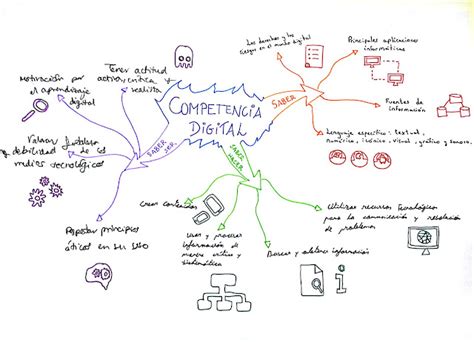 COMPETENCIA
DIGITAL
SABER
Los derechos y los
riesgos en el mundo digital
Principales aplicaciones
informáticas
Fuentes de
información
Lenguaje específico: textual,
numérico, icónico, visual, gráfico y sonoro.
SABER
HACER
Utilizar recursos tecnológicos
para la comunicación y resolución
de problemas
Buscar y obtener información
Usar y procesar
información de
manera crítica y
sistemática
Crear contenidos
SABER
SER
Respetar principios
éticos en su uso
Valorar fortalezas
y debilidades de los
medios tecnológicos
Motivación por
el aprendizaje
digital
Tener actitud
activa, crítica y
realista